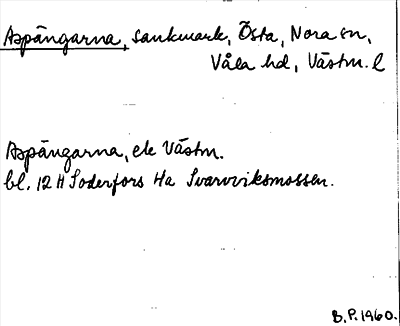 Aspängarna, sankmark, Östa, Nora sn,
Våla hd, Västm. l
Aspängarna, ek Västm.
bl. 12 H Söderfors 4a Svarvviksmossen.
B.P. 1960.